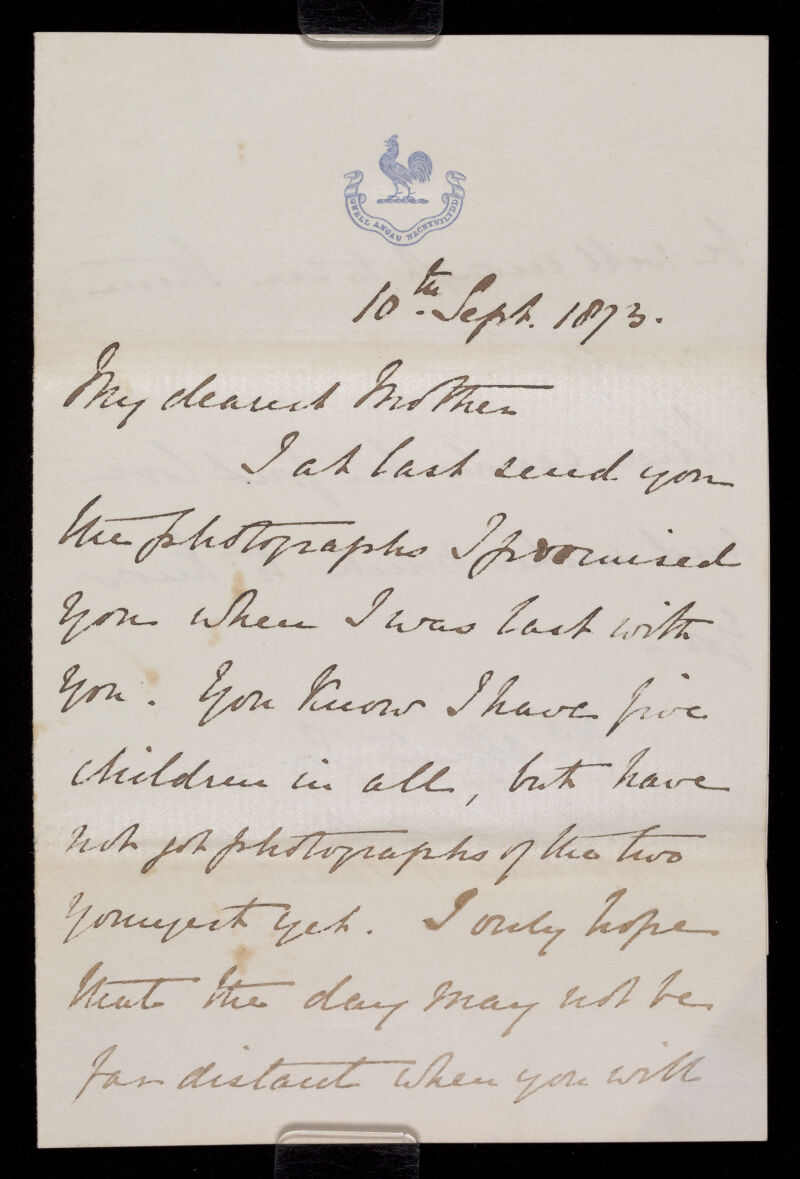 GWELL ANGAU NACHYWILYDD
10th. Sept. 1873.
My dearest Mother
I at last send you
the photographs I promised
you when I was last with
you. You know I have five
children in all, but have
not got photographs of the two
youngest yet. I only hope
that the day may not be
far distant when you will